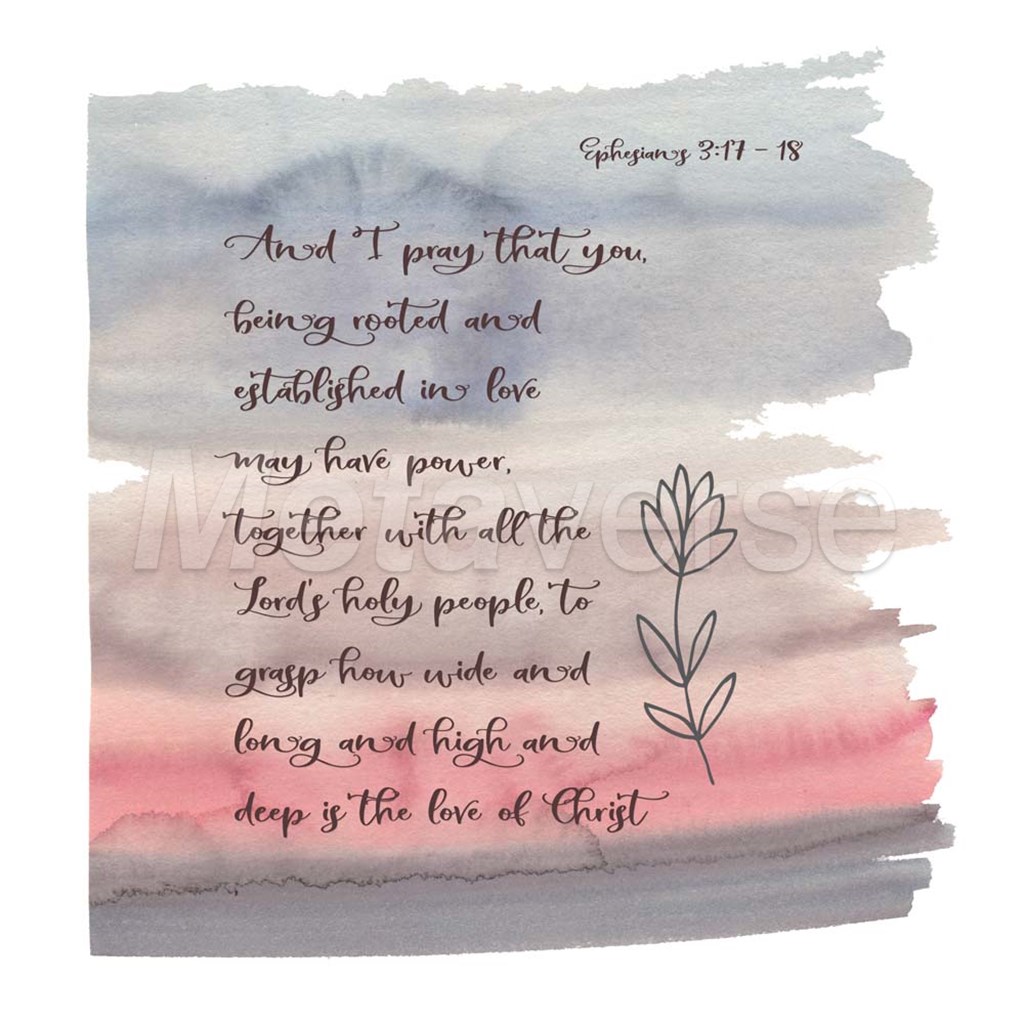 Ephesians 3:17 - 18
And I pray that you,
being rooted and
established in love
may have power,
together with all the
Lord's holy people, to
grasp how wide and
long and high and
deep is the love of Christ
Motaverse